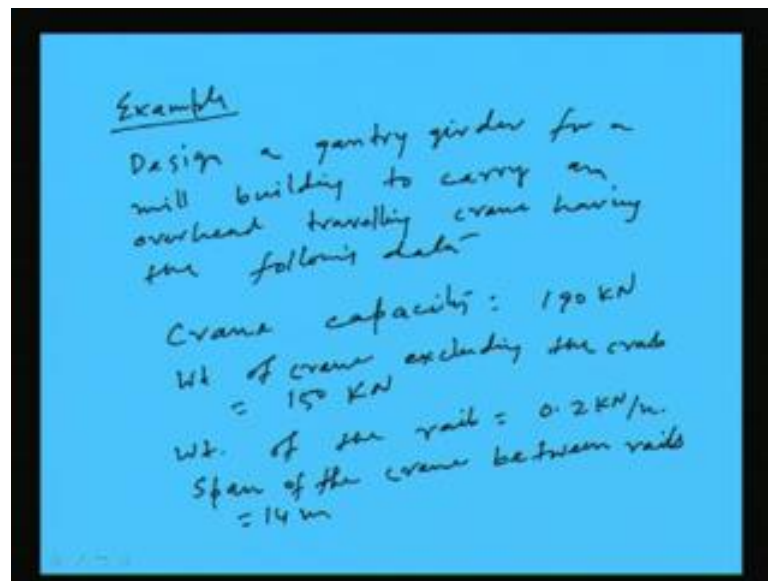 Example
Design a gantry girder for a
mill building to carry an
overhead travelling crane having
the following data
Crane capacity : 190 KN
Wt of crane excluding the crab
= 150 KN
Wt. of the rail = 0.2 KN/m.
Span of the crane between rails
= 14 m